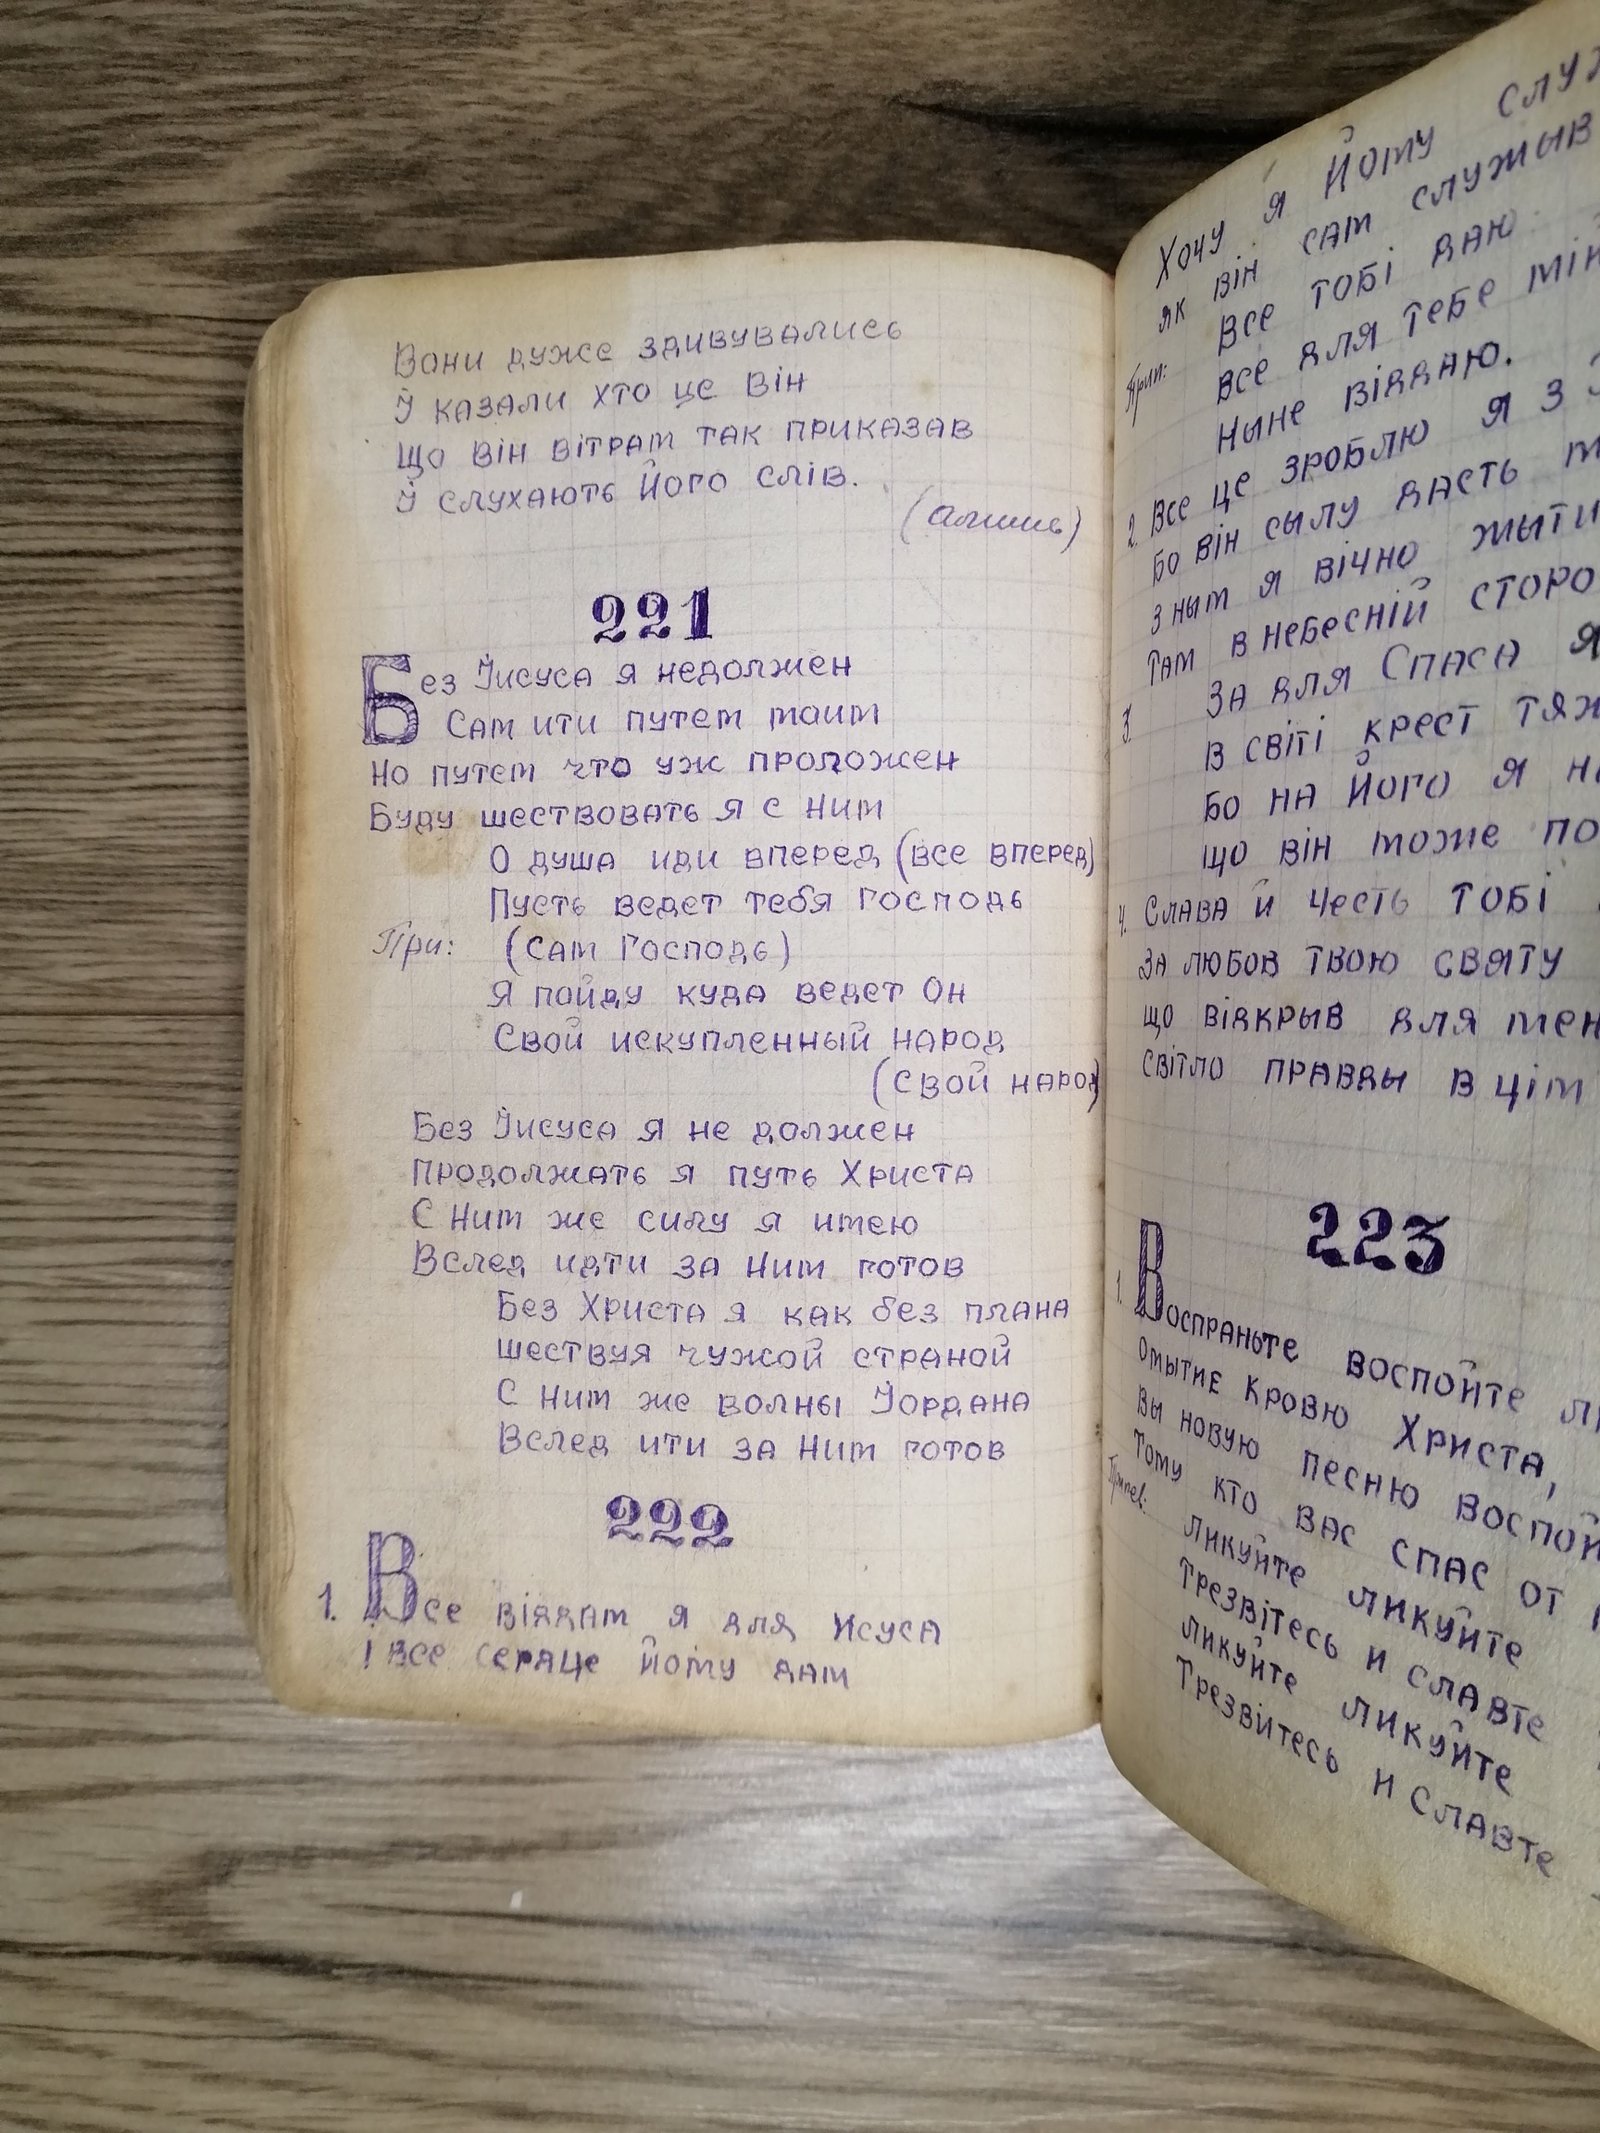 Вони дуже здивувались
Й казали хто це він
Що він вітрам так приказав
Й слухають Його слів.
(Аминь)
221
Без Йисуса я недолжен
Сам ити путем моим
Но путем что уж проложен
Буду шествовать я с Ним
О душа иди вперед (все вперед)
Пусть ведет тебя Господь
При: (Сам Господь)
Я пойду куда ведет Он
Свой искупленный народ
(Свой народ)
Без Йисуса я не должен
Продолжать я путь Христа
С Ним же силу я имею
Вслед идти за Ним готов
Без Христа я как без плана
шествуя чужой страной
С Ним же волны Йордана
Вслед ити за Ним готов
222
1. Все віддам я для Исуса
І все сердце йому дам
Хочу я Йому
як він сам служыв
Все тобі даю
Прип: Все для тебе
Ныне віддаю.
2. Все це зроблю я з
Бо він сылу дасть
З ным я вічно жыти
Там в небесній
3. За для Спаса я
В світі крест
Бо на Його я
що він може
4. Слава й честь тобі
За любов твою святу
що відкрыв для
світло правды в цім
223
1. Воспраньте воспойте
Омытие кровю Христа,
Вы новую песню
Тому кто вас спас от
Припев: Ликуйте ликуйте
Трезвітесь и славте
Ликуйте ликуйте
Трезвитесь и славте